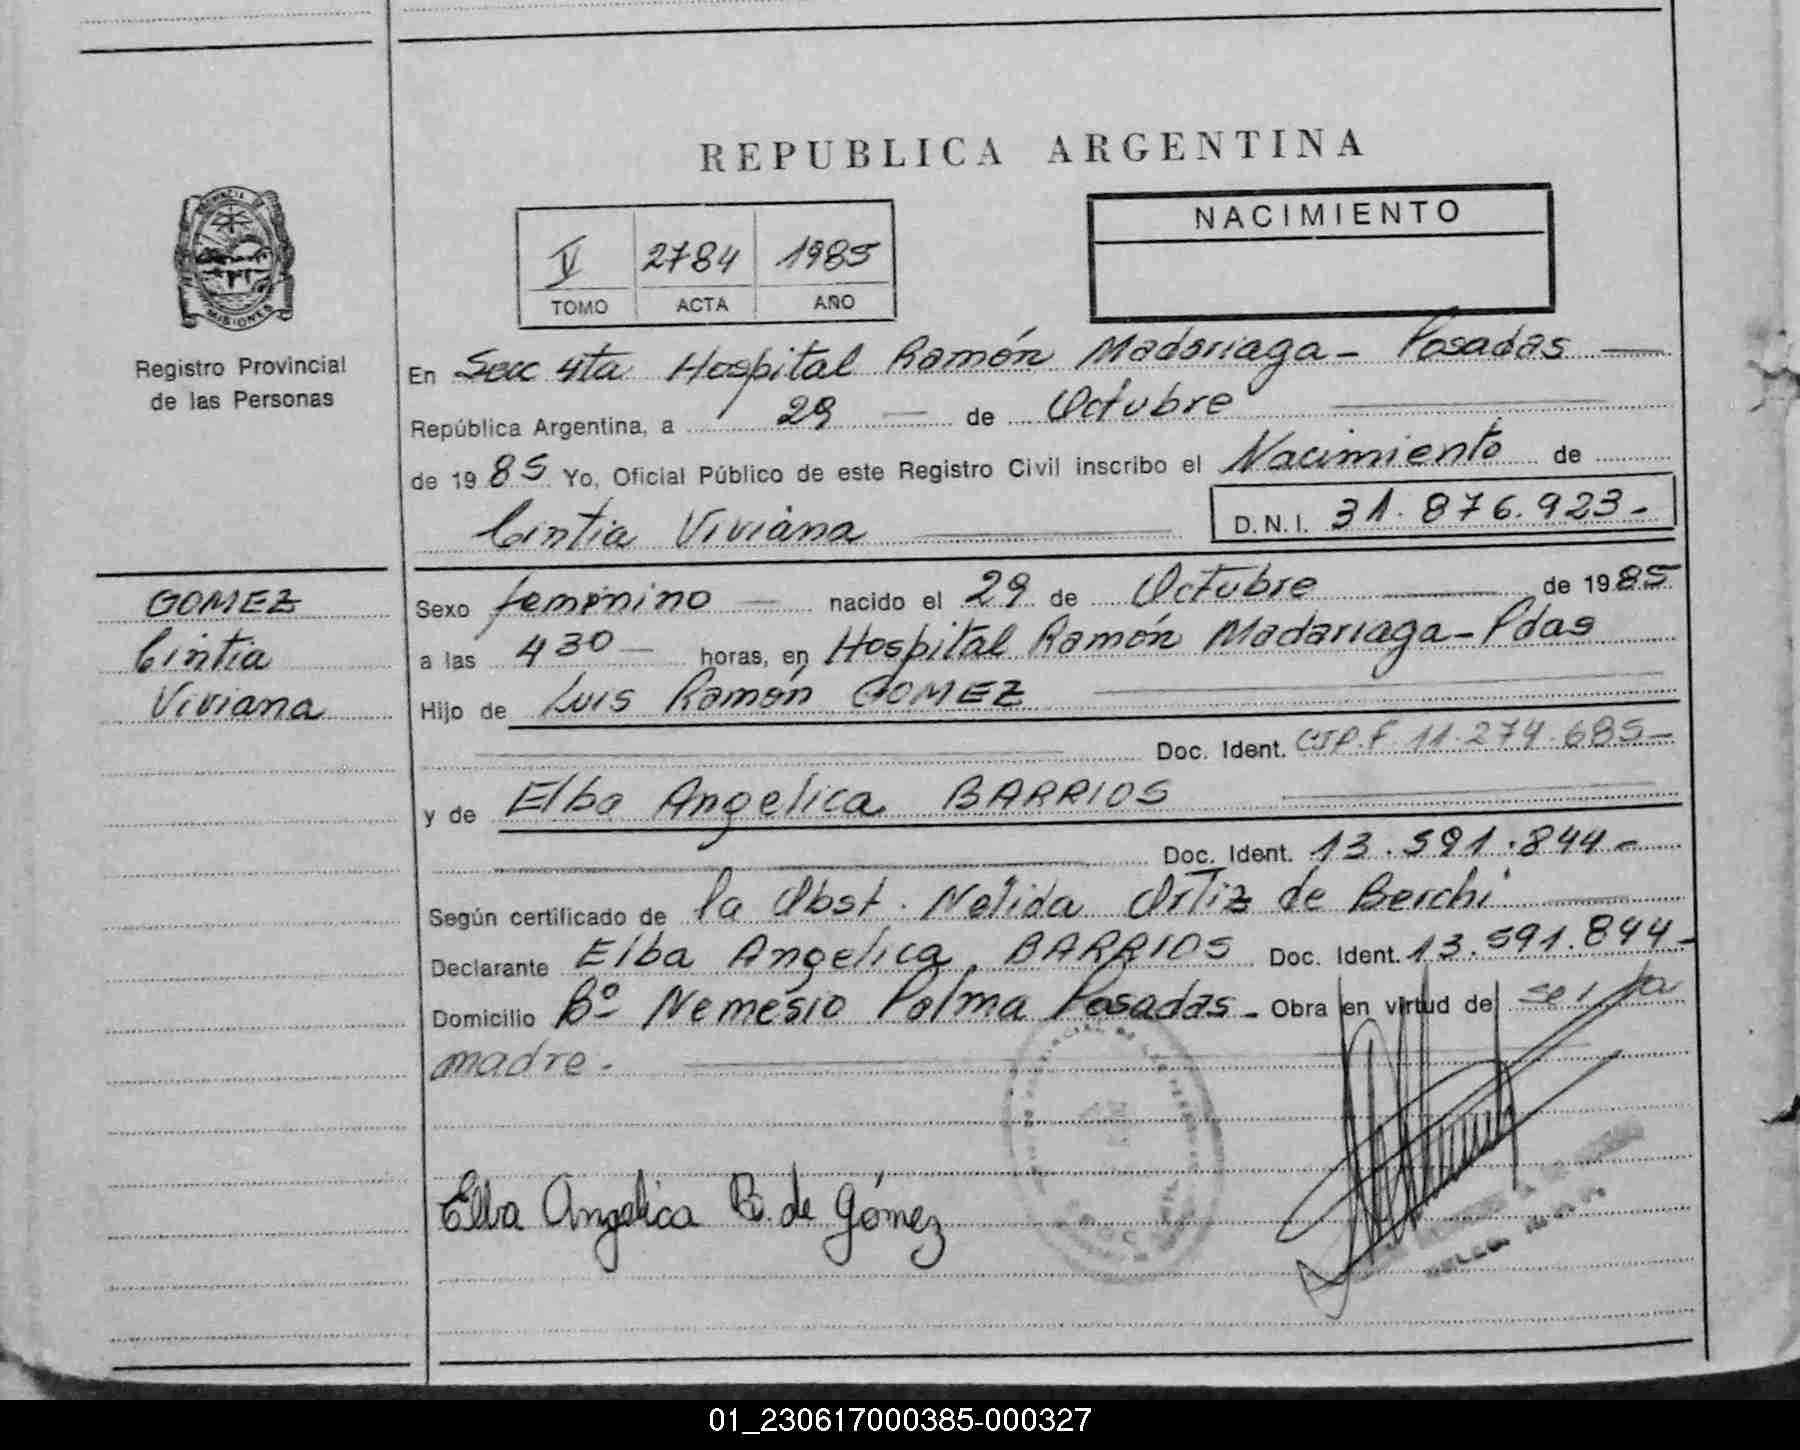 REPUBLICA ARGENTINA
PROVINCIA DE
MISIONES
Registro Provincial
de las Personas
V 2784 1985
TOMO ACTA AÑO
NACIMIENTO
En Secc 4ta Hospital Ramón Madariaga - Posadas
República Argentina, a 29 de Octubre
de 1985 Yo, Oficial Público de este Registro Civil inscribo el Nacimiento de
Cintia Viviana D.N.I. 31.876.923-
GOMEZ
Cintia
Viviana
Sexo femenino nacido el 29 de Octubre de 1985
a las 430 horas, en Hospital Ramón Madariaga - Pdas
Hijo de Luis Ramón GOMEZ
Doc. Ident. CIP.F 11.274.685-
y de Elba Angelica BARRIOS
Doc. Ident. 13.591.844-
Según certificado de la Obst. Nelida Ortiz de Berchi
Declarante Elba Angelica BARRIOS Doc. Ident. 13.591.844-
Domicilio Bº Nemesio Palma Posadas - Obra en virtud de ser la
madre.
Elba Angelica B. de Gómez
01_230617000385-000327